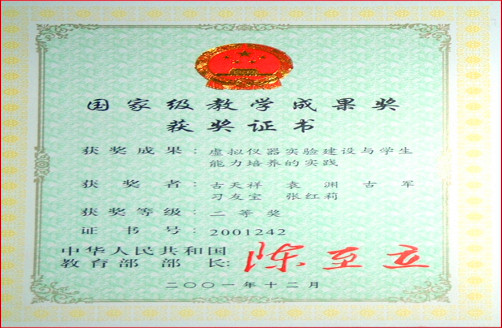 国家级教学成果奖
获奖证书
获奖成果：虚拟仪器实验建设与学生
能力培养的实践
获奖者：古天祥 袁渊 古军
习友宝 张红莉
获奖等级：二等奖
证书号：2001242
中华人民共和国
教育部部长：陈至立
二〇〇一年十二月